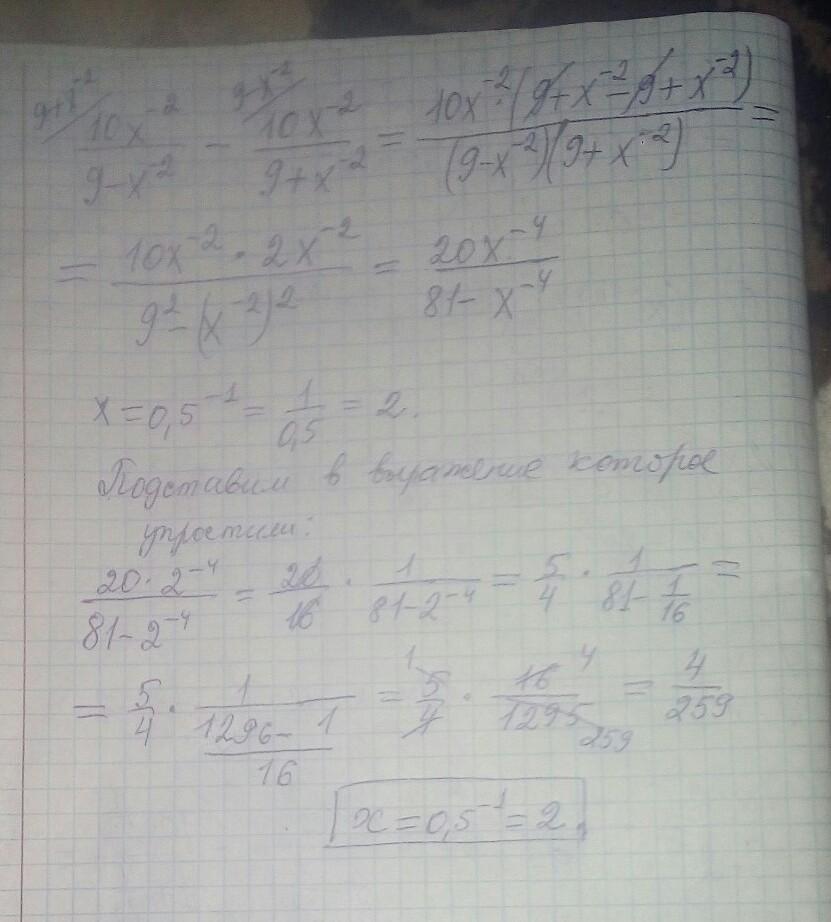 9+x⁻²/ 10x⁻²/(9-x²) - 9-x⁻²/ 10x⁻²/(9+x⁻²) = 10x⁻²·(9+x⁻²-9+x⁻²)/((9-x⁻²)(9+x⁻²)) =
= 10x⁻²·2x⁻²/(9²-(x⁻²)²) = 20x⁻⁴/(81-x⁻⁴)
x=0,5⁻¹ = 1/0,5 = 2.
Подставим в выражение которое
упростили:
20·2⁻⁴/(81-2⁻⁴) = 20/16 · 1/(81-2⁻⁴) = 5/4 · 1/(81-1/16) =
= 5/4 · 1/((1296-1)/16) = 5/4 · 16/1295 = 4/259
1 4 259
x=0,5⁻¹=2.